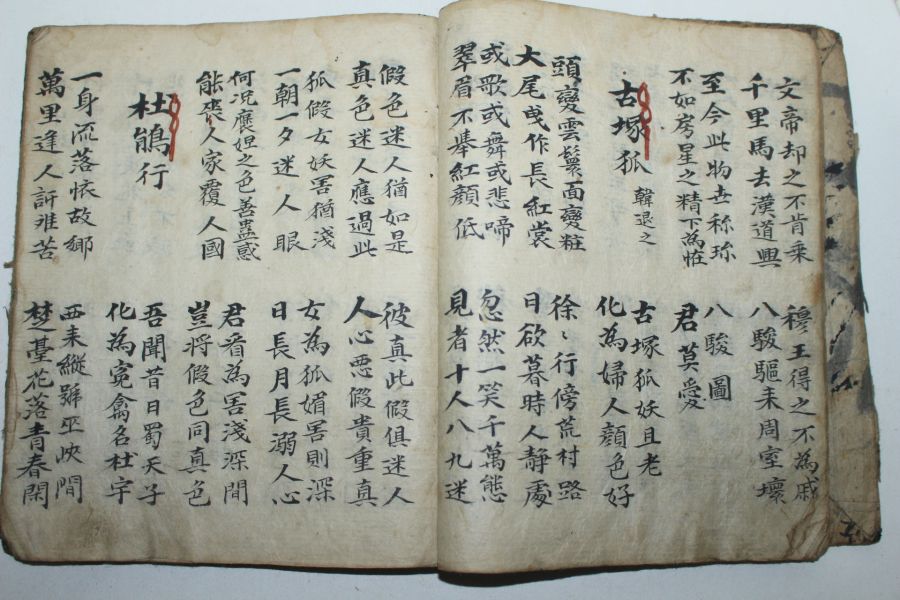 文帝却之不肯乗
千里馬去漢道興
穆王得之不為戚
八駿驅来周室壞
至今此物世称珎
不如房星之精下為恠
八駿圖
君莫愛
古塚狐 韓退之
古塚狐妖且老
化為婦人顔色好
頭變雲鬟面變粧
大尾曵作長紅裳
徐〻行傍荒村路
日欲暮時人靜處
或歌或舞或悲啼
翠眉不挙紅顔低
忽然一笑千萬態
見者十人八九迷
假色迷人猶如是
真色迷人應過此
彼真此假俱迷人
人心悪假貴重真
狐假女妖害猶淺
一朝一夕迷人眼
女為狐媚害則深
日長月長溺人心
何况褒妲之色善蠱惑
能喪人家覆人國
君看為害淺深間
豈将假色同真色
杜鵑行
吾聞昔日蜀天子
化為寃禽名杜宇
一身流落懷故鄉
萬里逢人訴难苦
西来縱號巫峽間
楚臺花落青春閑